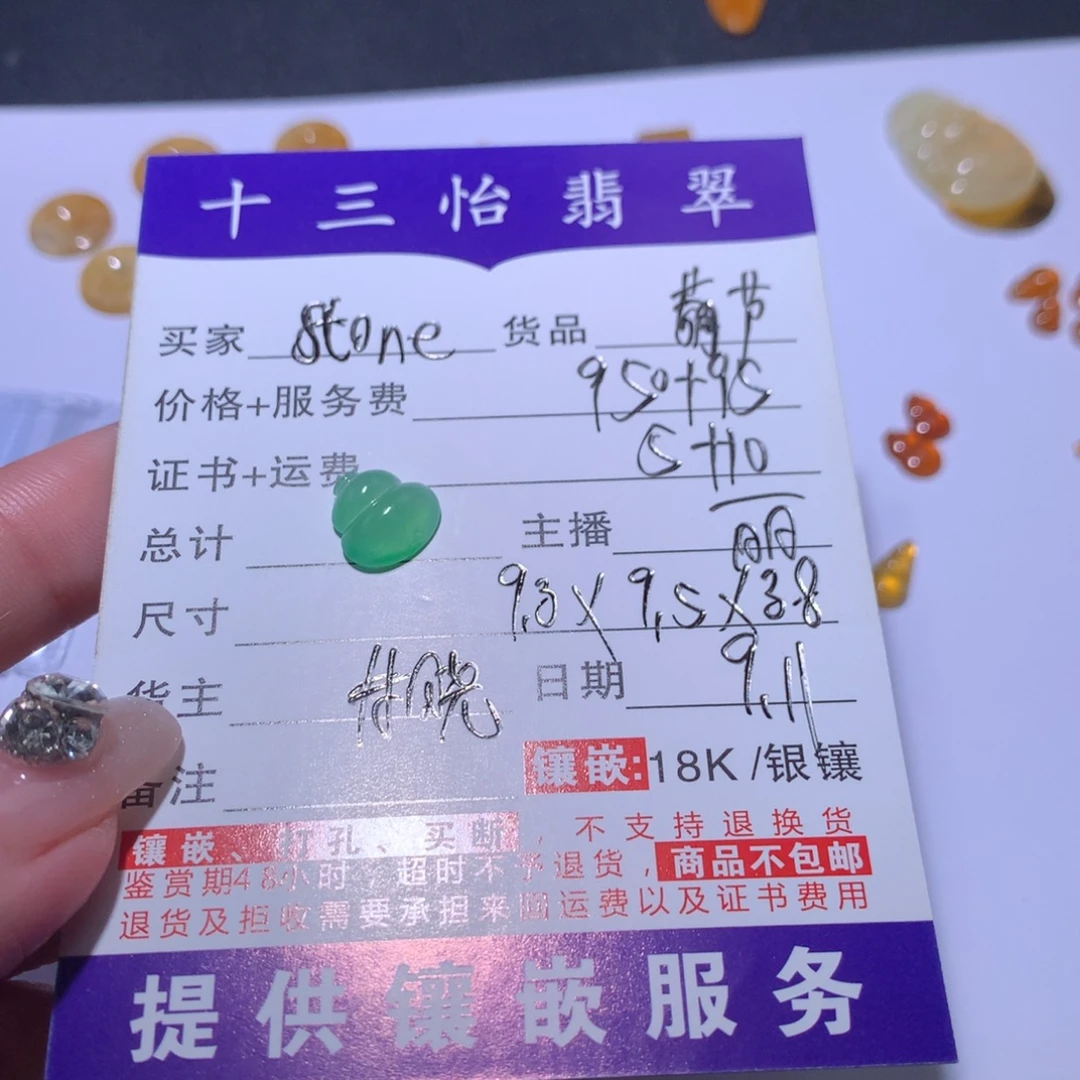 十三怡翡翠
买家 Stone 货品 葫芦
价格+服务费 950+95
证书+运费 5+10
总计 主播 萌
尺寸 9.3X9.5X3.8
货主 晓 日期 9.11
备注 镶嵌:18K/银镶
镶嵌、打孔、买断,不支持退换货
鉴赏期48小时,超时不予退货,商品不包邮
退货及拒收需要承担来回运费以及证书费用
提供镶嵌服务